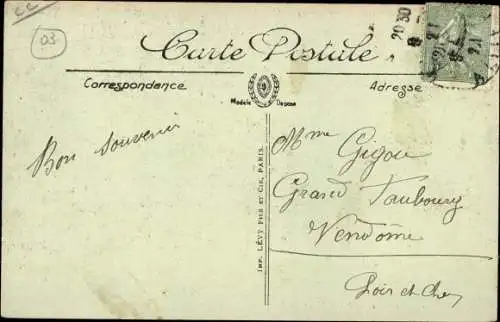 CC
03
Carte Postale
20 30
Correspondance
Adresse
Modèle Déposé
Bon souvenir
IMP. LÉVY FILS ET CIE, PARIS.
Mme Gigou
Grand Faubourg
Vendôme
Loir et Cher